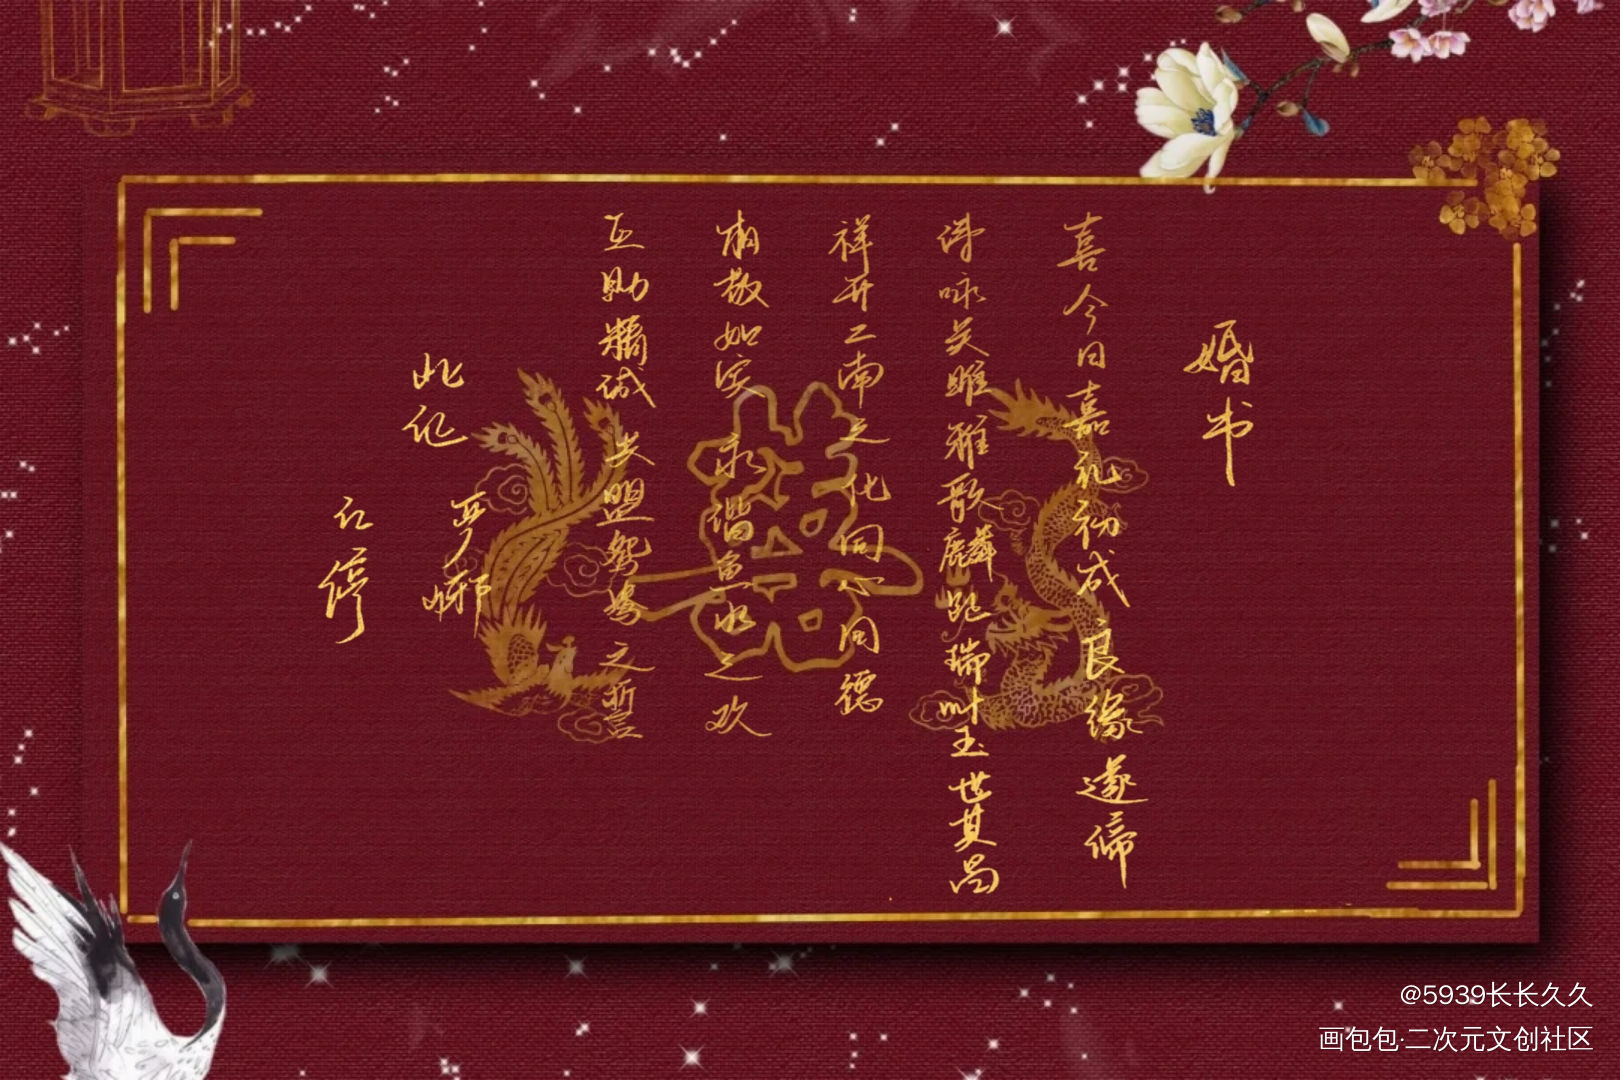 婚书
喜今日嘉礼初成 良缘遂缔
诗咏关雎 雅歌麟趾 瑞叶五世其昌
祥开二南之化 同心同德
相敬如宾 永谐鱼水之欢
互助精诚 共盟鸳鸯之誓
此化
严娜
仁停
@5939长长久久
画包包·二次元文创社区